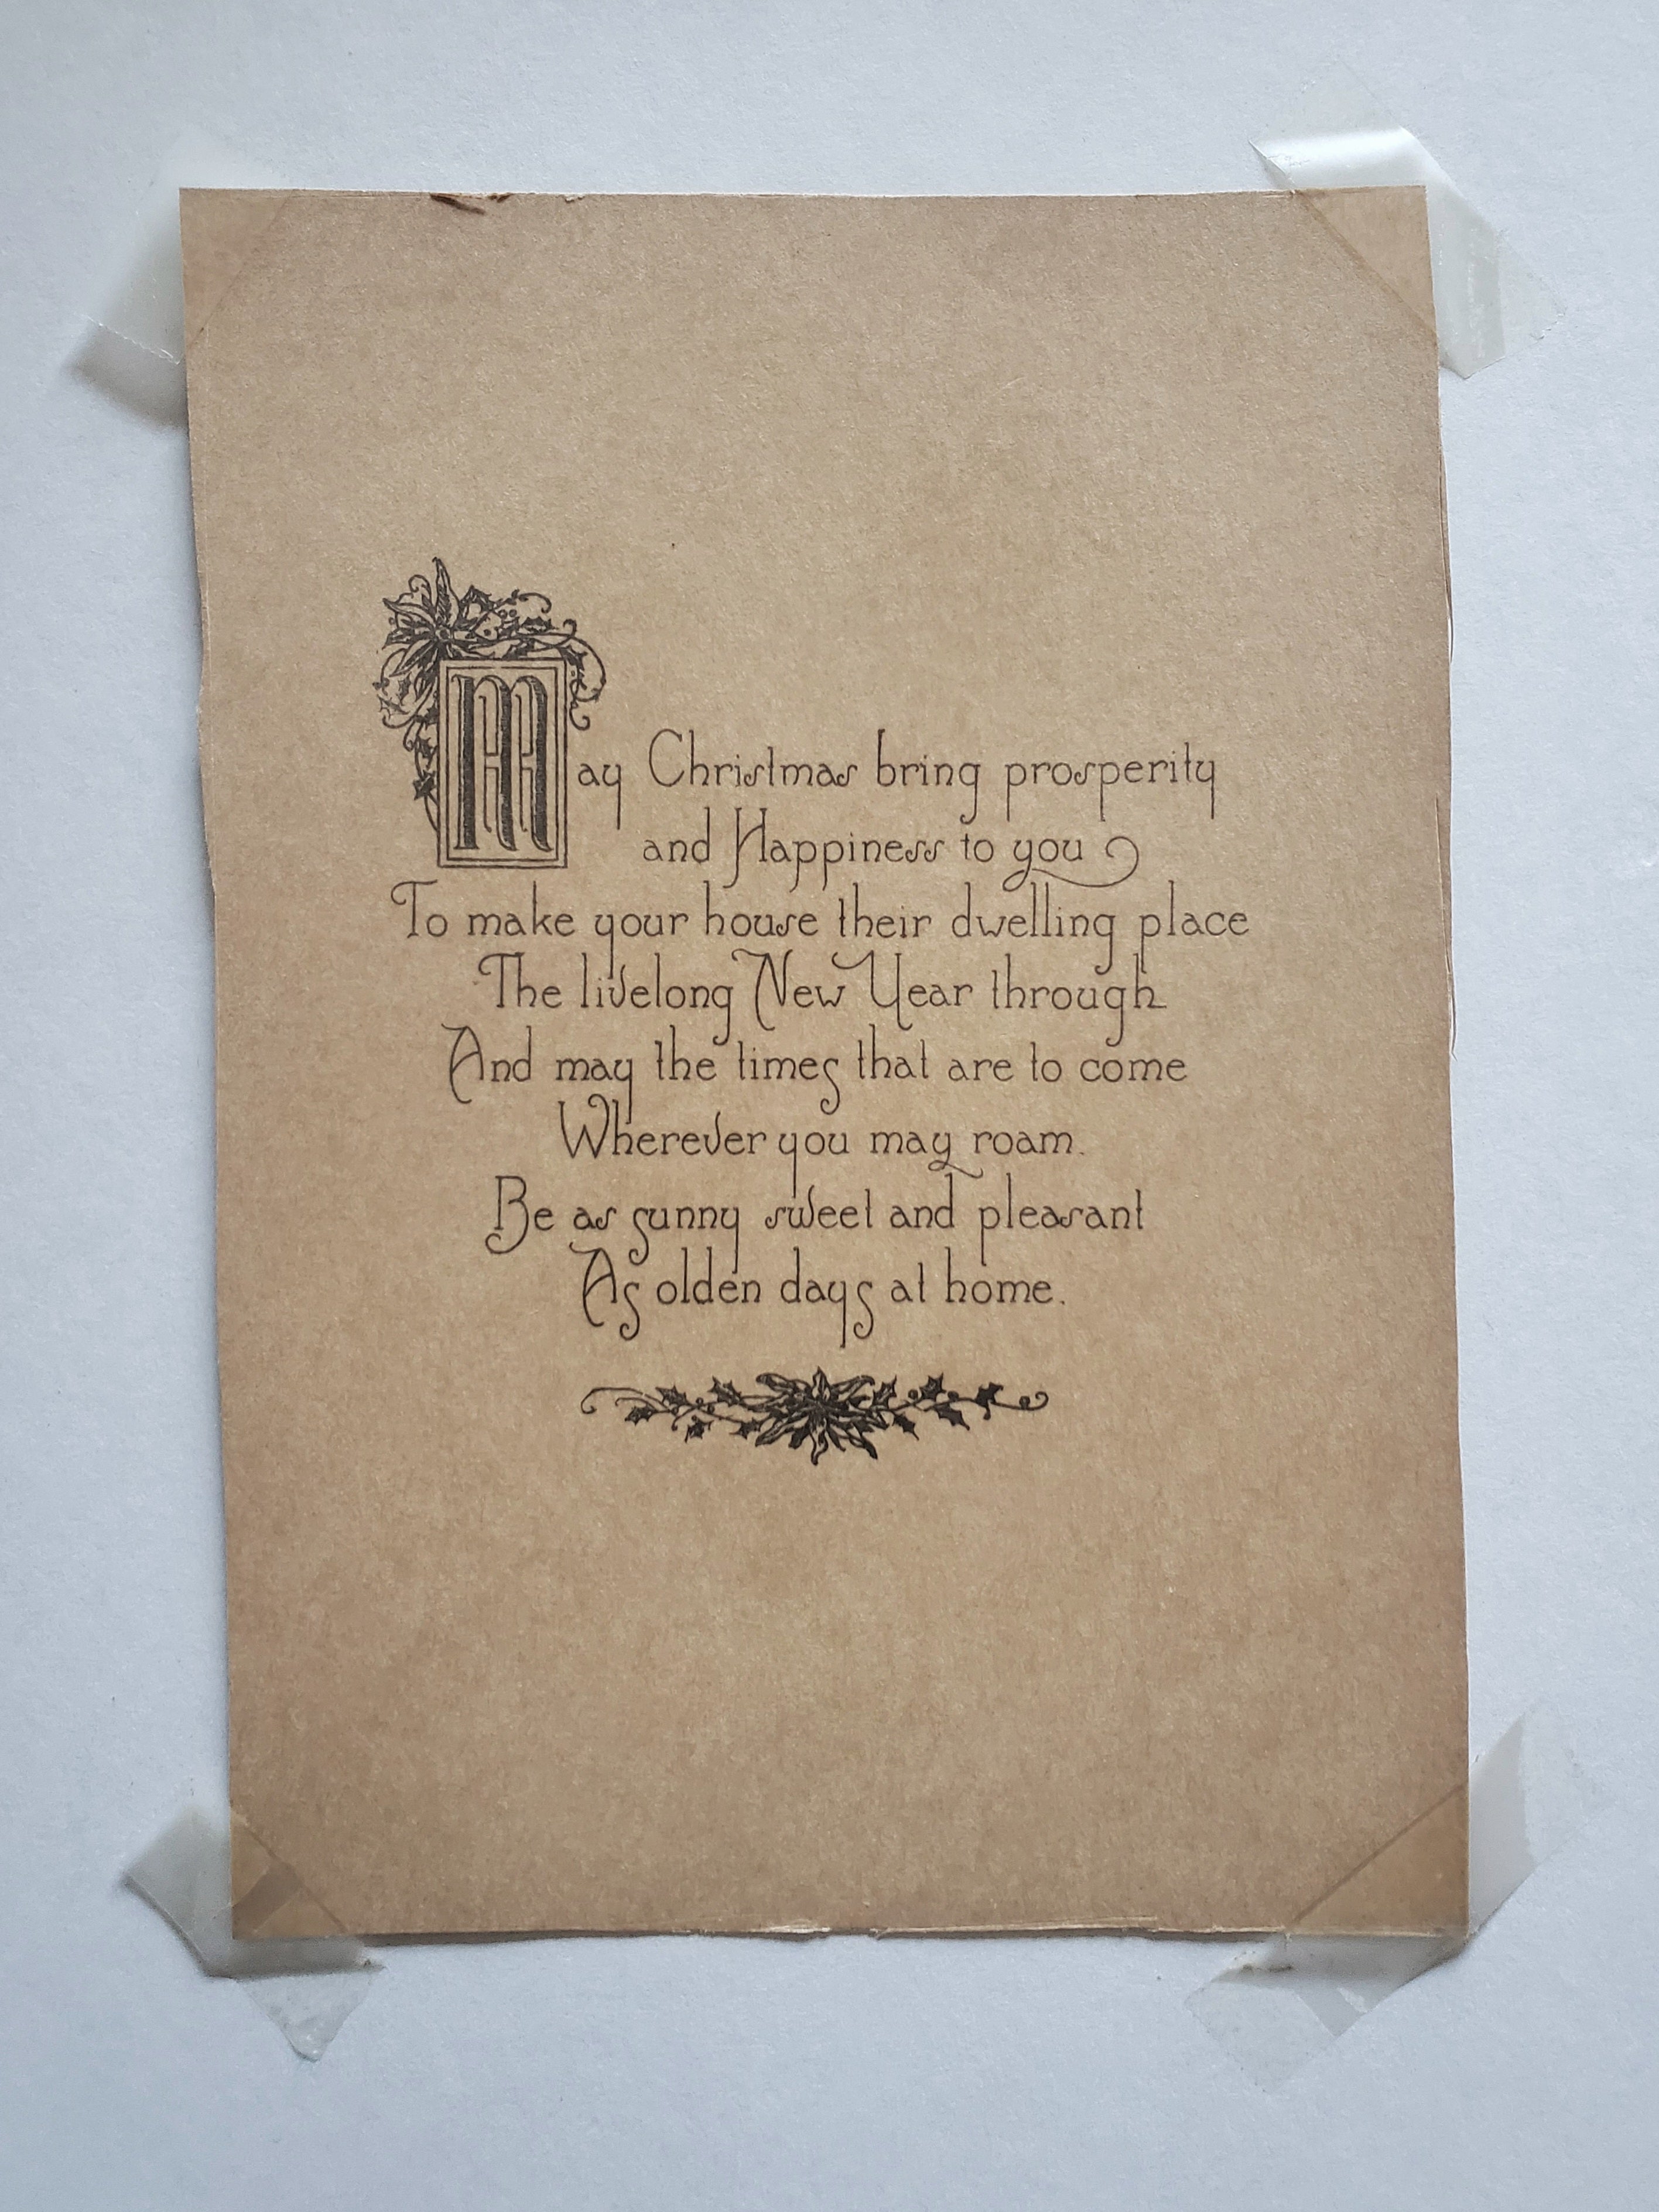 May Christmas bring prosperity
and Happiness to you
To make your house their dwelling place
The livelong New Year through
And may the times that are to come
Wherever you may roam.
Be as sunny sweet and pleasant
As olden days at home.